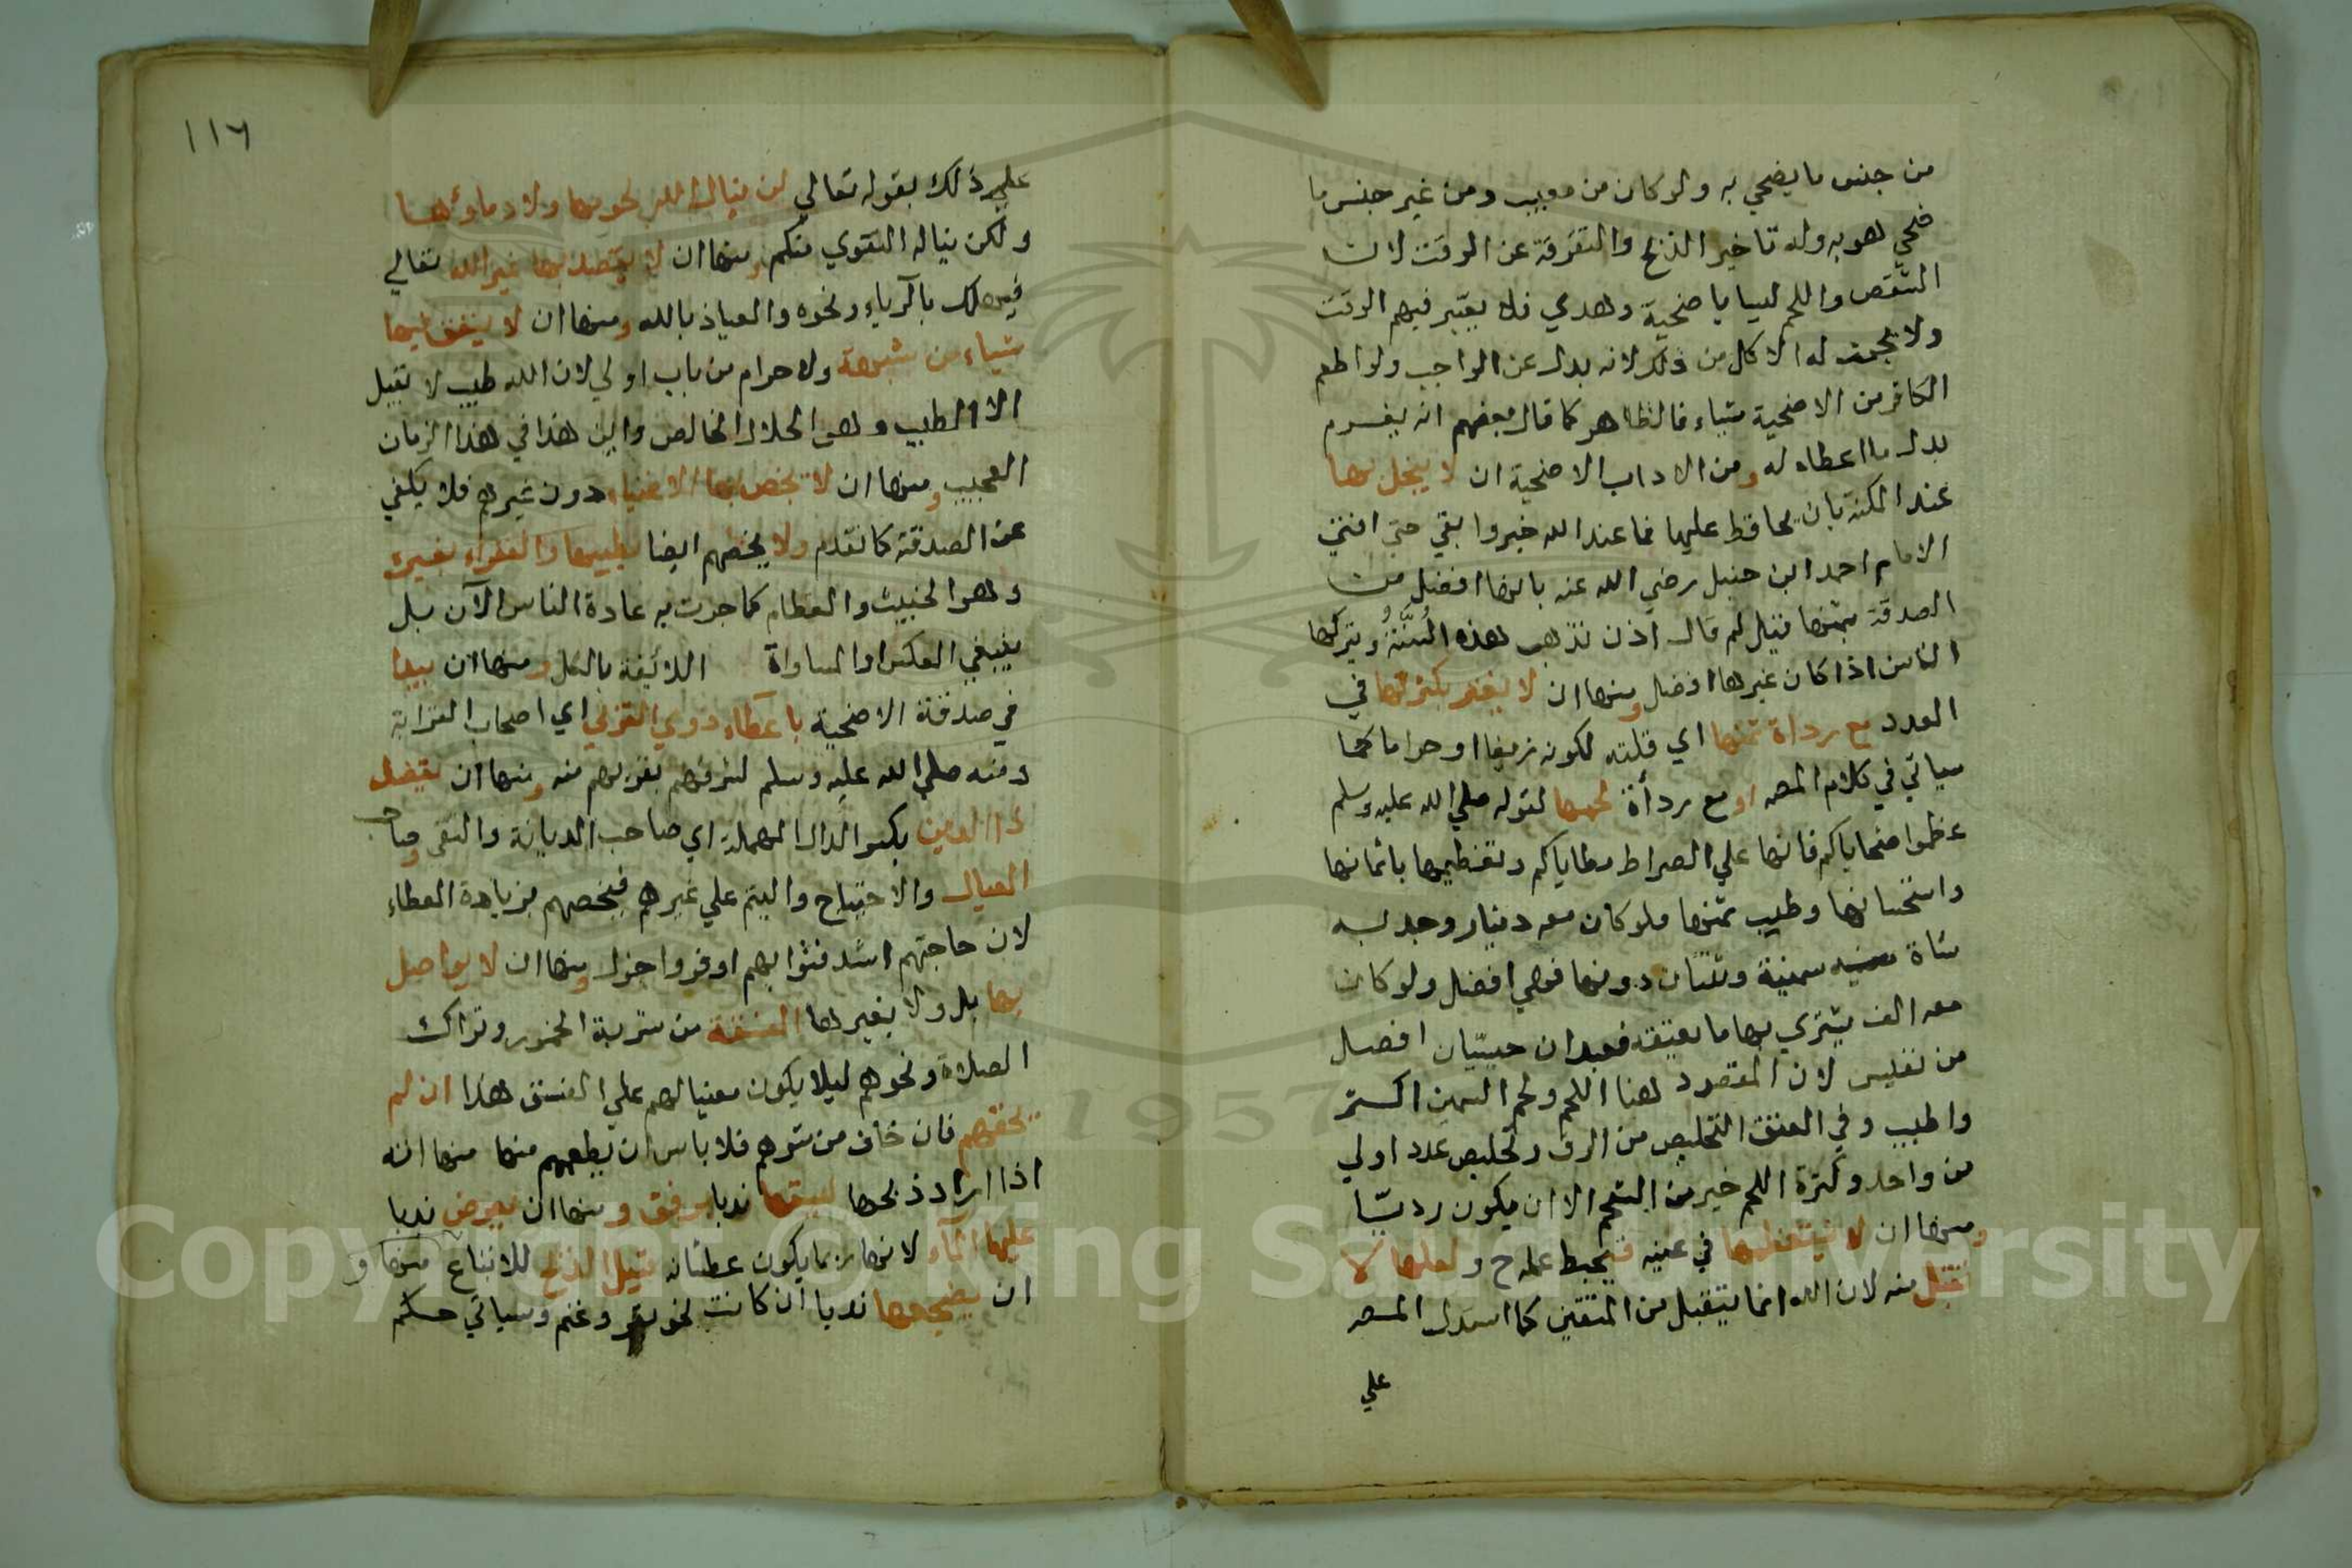 من جنس ما يضحي به ولو كان من معيب ومن غير جنس ما
ضحي هو به وله تاخير الذبح والتفرقة عن الوقت لان
النقص واللحم ليسا باضحية وهدي فلا يعتبر فيهم الوقت
ولا يجوز له الاكل من ذلك لانه بدل عن الواجب ولو اطعم
الكافر من الاضحية شياء فالظاهر كما قال بعضهم انه يغرم
بدل ما اعطاه له ومن الاداب الاضحية ان لا يبخل بها
عند المكنة بان يحافظ عليها فما عند الله خير وابقي حتي افتي
الامام احمد ابن حنبل رضي الله عنه بانها افضل من
الصدقة بثمنها فقيل لم قال اذن تذهب هذه السُّنَّةُ ويتركها
الناس اذا كان غيرها افضل ومنها ان لا يغتر بكثرتها في
العدد مع رداة ثمنها اي قلته لكونه زيفا او حراما كما
سياتي في كلام المصه او مع رداة لحمها لقوله صلي الله عليه وسلم
عظموا ضحاياكم فانها علي الصراط مطاياكم وتعظيمها باثمانها
واستحسانها وطيب ثمنها فلو كان معه دينار وجد به
شاة سمينة وثنتان دونها فهي افضل ولو كان
معه الف يشتري بها ما يعتقه فعبدان خسيسان افضل
من نفيس لان المقصود هنا اللحم ولحم السمين اكثر
واطيب وفي العتق التخليص من الرق وتخليص عدد اولي
من واحد وكثرة اللحم خير من الشحم الا ان يكون رديّا
ومنها ان لا يستعظمها في عينه فيحبط عمله ح ولعلها لا
تقبل منه لان الله انما يتقبل من المتقين كما استدل المصه
علي
١١٦
علي ذلك بقوله تعالي لن ينال الله لحومها ولا دماوها
ولكن يناله التقوي منكم ومنها ان لا يقصد بها غير الله تعالي
فيهلك بالرياء ونحوه والعياذ بالله ومنها ان لا ينفق فيها
شياء من شبهة ولا حرام من باب اولي لان الله طيب لا يقبل
الا الطيب وهو الحلال الخالص واين هذا في هذا الزمان
العجيب ومنها ان لا يخص بها الاغنياء دون غيرهم فلا يكفي
عن الصدقة كما تقدم ولا يخصهم ايضا بطيبها والفقراء بغيره
وهو الخبيث والعظام كما جرت به عادة الناس الآن بل
ينبغي العكس او المساواة اللائقة بالكل ومنها ان يبدا
في صدقة الاضحية باعطاء ذوي القربي اي اصحاب القرابة
منه صلي الله عليه وسلم لشرفهم بقربهم منه ومنها ان يفضل
ذا الدين بكسر الدال المهملة اي صاحب الديانة والتقي وصاحب
العيال والاحتياج واليتم علي غيرهم فيخصهم بزيادة العطاء
لان حاجتهم اشد فثوابهم اوفر واجزل ومنها ان لا يواصل
بها بل ولا بغيرها الفسقة من شربة الخمور وتراك
الصلاة ونحوهم ليلا يكون معينا لهم علي الفسق هذا ان لم
يخفهم فان خاف من شرهم فلا باس ان يطعمهم منها منها انه
اذا اراد ذبحها يسوقها ندبا برفق ومنها ان يعرض ندبا
عليها الماء لانها ربما يكون عطشانه قبل الذبح للاتباع منها و
ان يضجعها ندبا ان كانت نحو بقر وغنم وسياتي حكم